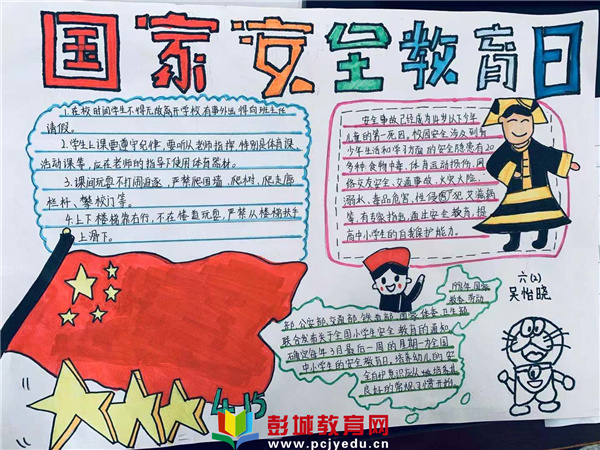 国家安全教育日
1.在校时间学生不得无故离开学校,有事外出得向班主任
请假。
2.学生上课要遵守纪律,要听从老师指挥,特别是体育课,
活动课等,应在老师的指导下使用体育器材。
3.课间玩耍不打闹追逐,严禁爬围墙、爬树、爬走廊
栏杆、攀校门等。
4.上下楼梯靠右行,不在楼道玩耍,严禁从楼梯扶手
上滑下。
安全事故已经成为14岁以下少年
儿童的第一死因,校园安全涉及到青
少年生活和学习方面的安全隐患有20
多种,食物中毒、体育运动损伤、网
络交友安全、交通事故、火灾火险、
溺水、毒品危害、性侵犯、艾滋病
等,有专家指出,通过安全教育,提
高中小学生的自我保护能力。
1996年国家
教委、劳动
部、公安部、交通部、铁道部、国家体委、卫生部
联合发布关于全国小学生安全教育的通知,
确定每年3月最后一周的星期一为全国
中小学生的安全教育日,培养幼儿的安
良好的常规习惯开始
六(2)
吴怡晓
4.15
彭城教育网
www.pcjyedu.cn